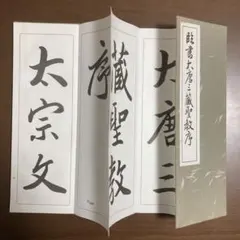 臨書大唐三藏聖教序
大唐三
藏聖教
序
太宗文